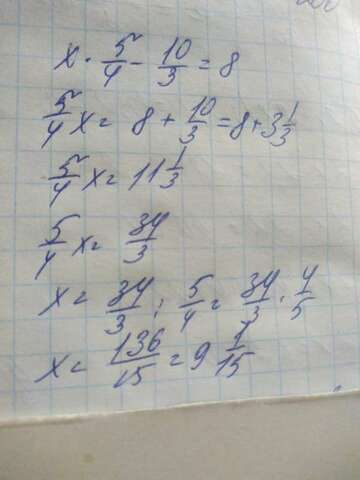 x · 5/4 - 10/3 = 8
5/4 x = 8 + 10/3 = 8 + 3 1/3
5/4 x = 11 1/3
5/4 x = 34/3
x = 34/3 : 5/4 = 34/3 · 4/5
x = 136/15 = 9 1/15